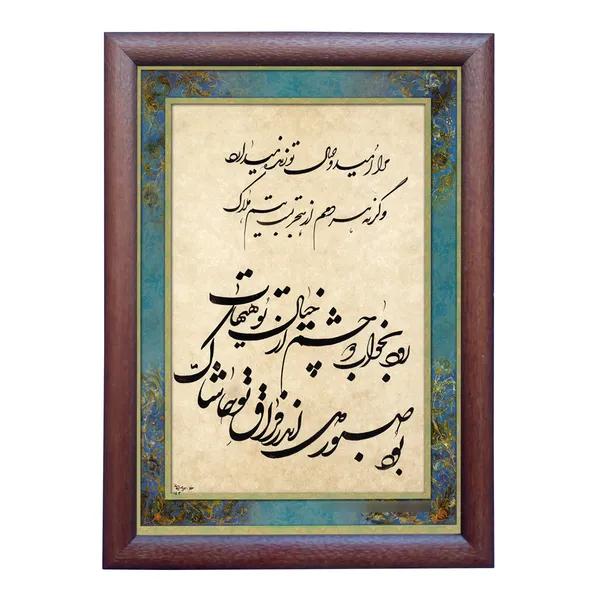 مرا امید وصال تو زنده میدارد
وگرنه هر دمم از هجر تست بیم هلاک
رود بخواب دو چشم از خیال تو هیهات
بود صبور دل اندر فراق تو حاشاک